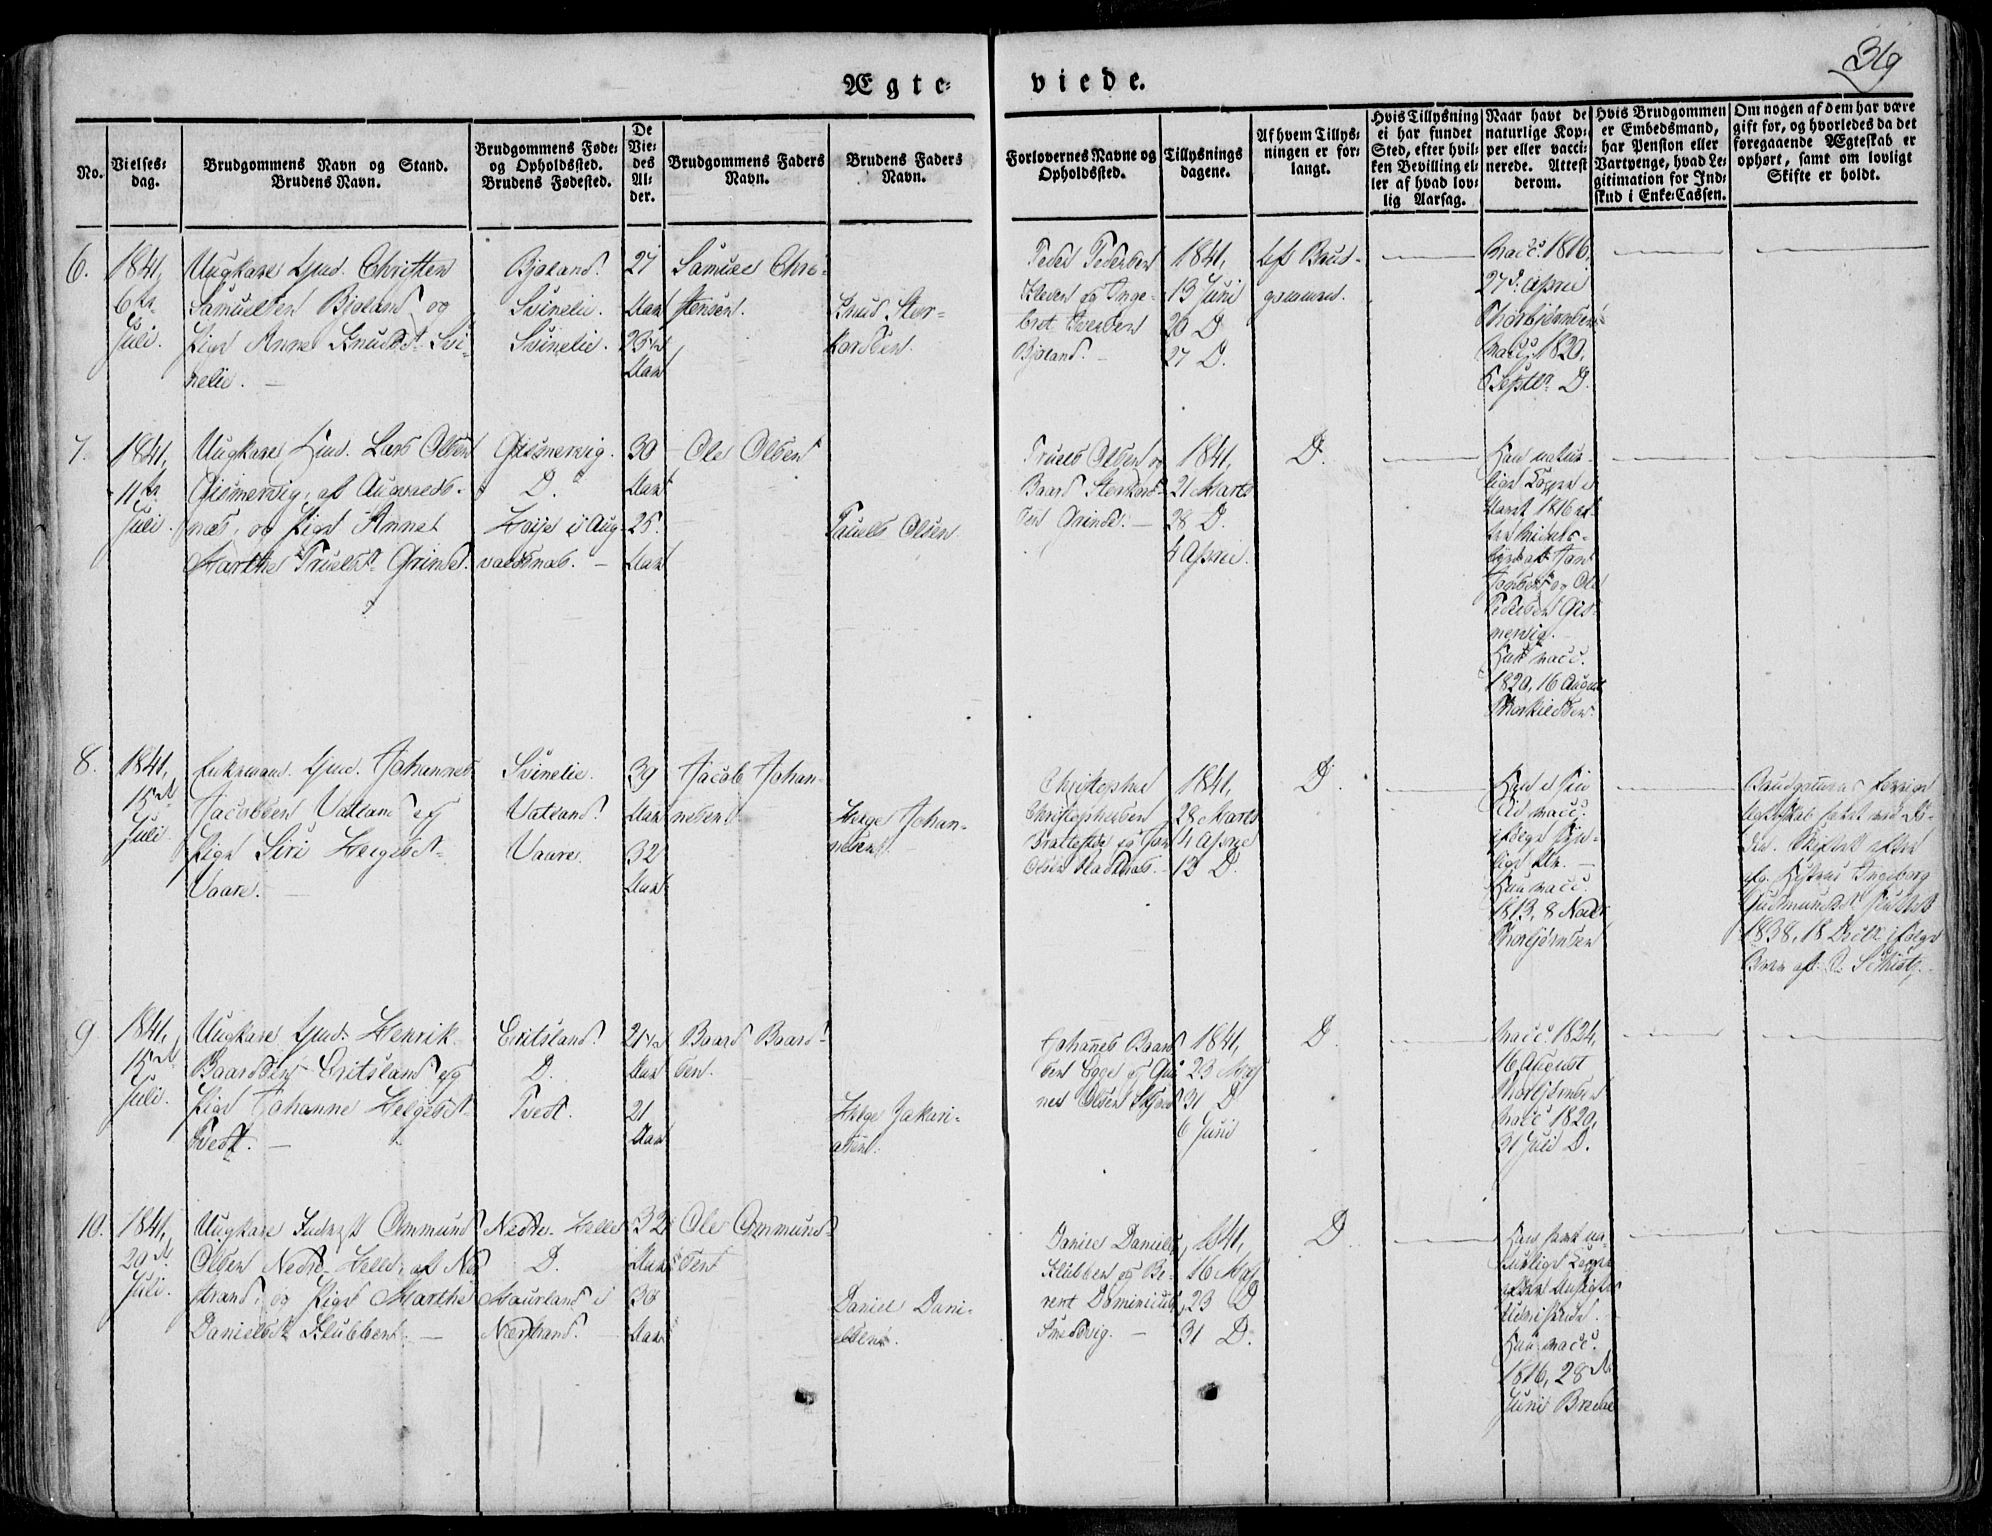 319
Ægte-
viede.
No.
Vielses-
dag.
Brudgommens Navn og Stand.
Brudens Navn.
Brudgommens Føde-
og Opholdssted.
Brudens Fødested.
De
Vie-
des
Al-
der.
Brudgommens Faders
Navn.
Brudens Faders
Navn.
Forlovernes Navne og
Opholdssted.
Tillysnings
dagene.
Af hvem Tillys-
ningen er for-
langt.
Hvis Tillysning
ei har fundet
Sted, efter hvil-
ken Bevilling el-
ler af hvad lov-
lig Aarsag.
Naar havt de
naturlige Kop-
per eller vacci-
nerede. Attest
derom.
Hvis Brudgommen
er Embedsmand,
har Pension eller
Vartpenge, hvad Le-
gitimation for Ind-
skud i Enke-Cassen.
Om nogen af dem har være
gift før, og hvorledes da det
foregaaende Ægteskab er
ophørt, samt om lovligt
Skifte er holdt.
6.
1841,
6te
Juli.
Ungkarl Gmd. Christen
Samuelsen Bjøland og
Pige Anne Knudsd. Svi-
nelie. —
Bjøland.
Svinelie.
Svinelie.
27
Aar
23
Aar
Samuel Chri-
stensen.
Knud Stor-
karsen.
Peder Pedersen
og Inge-
bret Iversen
Bjøland. —
1841,
13 Juni
20 D.
27 D.
Brud-
gommen.
Vacc. 1816,
27de April
Thorbjørnsen
Vacc. 1820,
6 Septbr D.
7.
1841,
11te
Juli.
Ungkarl Lars Olsen
Gismervig, af Augvalds-
næs, og Pige Anne
Marthe Truelsd. Grinde.
Gismervig.
D.
Høije i Aug-
valdsnæs. —
30
Aar
25
Aar
Ole Olsen
Truels Olsen
Truels Olsen og
Baard Storkard-
sen Grinde. —
1841,
21 Marts
28 D.
4 April.
D.
Han natur-
lige Kopper
1816
Jan
og Ole
Pedersen Gis-
mervig.
Hun vacc.
1820, 16 August
Thorkildsen.
8.
1841,
15de
Juli.
Enkemand Gmd. Johannes
Jacobsen Vatland og
Pige Siri Helgesd.
Vaare. —
Svinelie.
Vatland.
Vaare.
39
Aar
32
Aar
Jacob Johan-
nesen.
Helge Johan-
nesen.
Christopher
Christophersen
og Jan
Olsen
1841,
28 Marts
4 April
12 D.
D.
Han
vacc.
ifølge
Hun vacc.
1813, 8 Novbr
Thorbjørnsen
Brudgommens forrige
Ægteskab hævet ved Dø-
den. Skiftet efter
afd. Ingeborg
Gudmundsd. sluttet
1838, 18 Decbr ifølge
Brev af Schiøtz.
9
1841,
15de
Juli.
Ungkarl Gmd. Henrik
Baardsen Eritsland og
Pige Johanne Helgesd.
Tvedt. —
Eritsland.
D.
Tvedt.
21
Aar
21
Aar
Baard Baard-
sen.
Helge Zakari-
asen.
Johannes Baard-
sen og
Olsen
1841,
23 Maj
31 D
6 Juni
D.
Vacc. 1824,
16 August
Thorbjørnsen
Vacc. 1820,
31 Juli D.
10.
1841,
20de
Juli.
Ungkarl Ommund
Olsen Nedre-Helle, af Ne-
strand, og Pige Marthe
Danielsd. Slubben. —
Nedre-Helle
D.
Maurland i
Nerstrand.
32
Aar
30
Aar
Ole Ommund-
sen
Daniel Dani-
elsen.
Daniel Daniels.
Slubben og Be-
rent Dominicus
Smedvig. —
1841,
16 Maj
23 D
31 D.
D
Han havt na-
turlige Kopper
Hun vacc.
1816, 28de
Juni